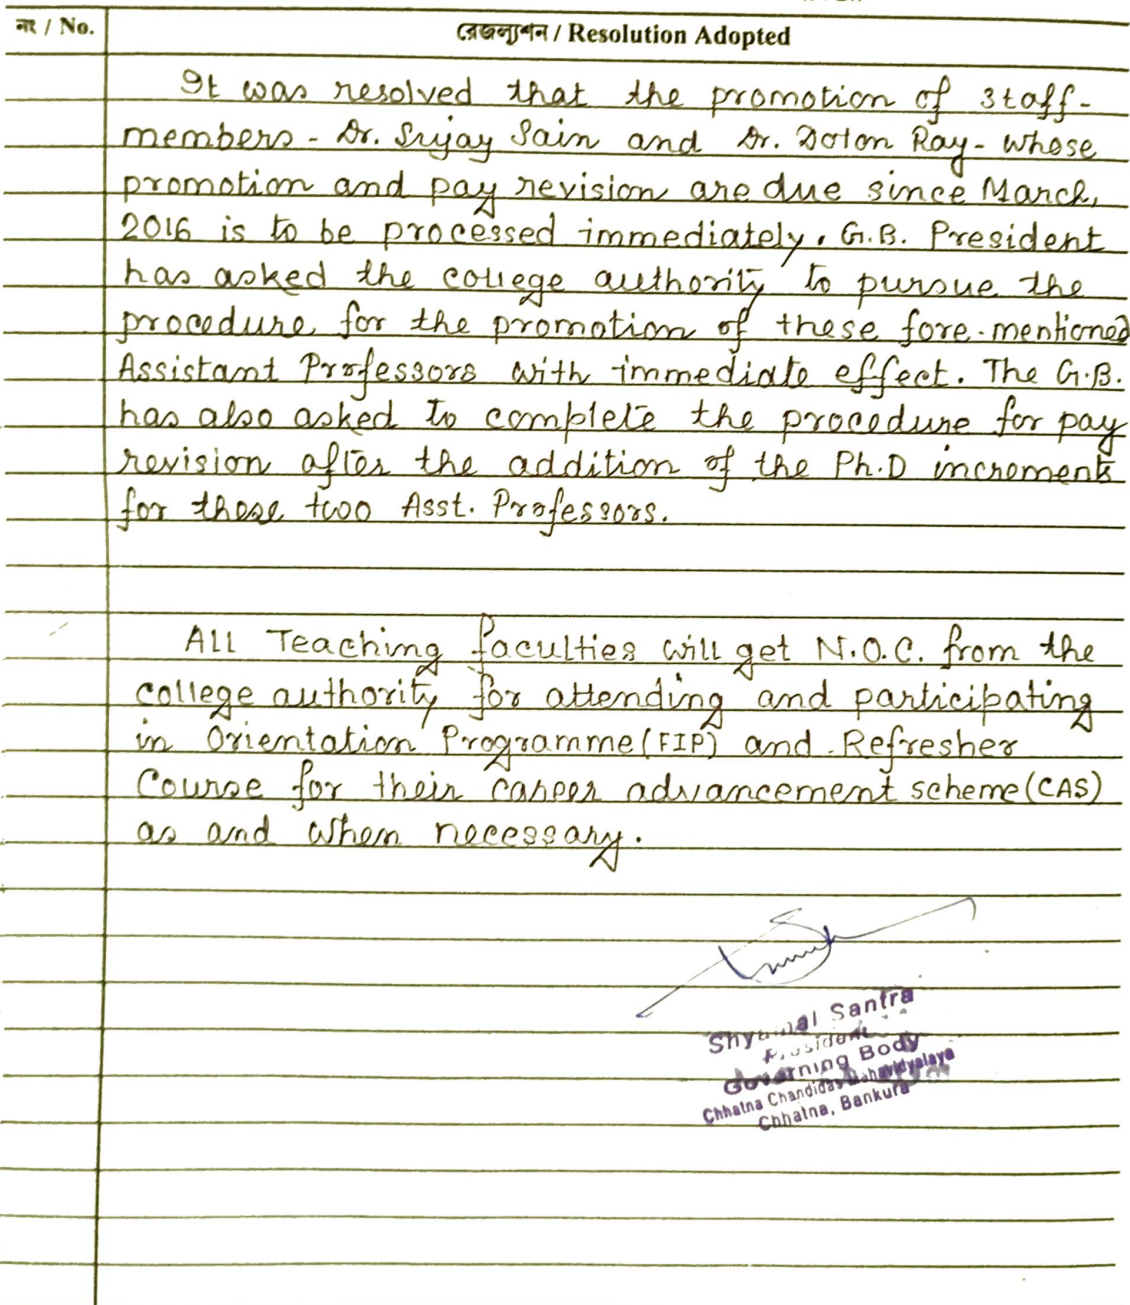 নং / No.
রেজল্যুশন / Resolution Adopted
It was resolved that the promotion of staff-
members - Dr. Sujay Sain and Dr. Dolon Ray - whose
promotion and pay revision are due since March,
2016 is to be processed immediately. G.B. President
has asked the college authority to pursue the
procedure for the promotion of these fore-mentioned
Assistant Professors with immediate effect. The G.B.
has also asked to complete the procedure for pay
revision after the addition of the Ph.D increments
for these two Asst. Professors.
All Teaching faculties will get N.O.C. from the
college authority for attending and participating
in Orientation Programme (FIP) and Refresher
Course for their career advancement scheme (CAS)
as and when necessary.
Shyamal Santra
President
Governing Body
Chhatna Chandidas Mahavidyalaya
Chhatna, Bankura